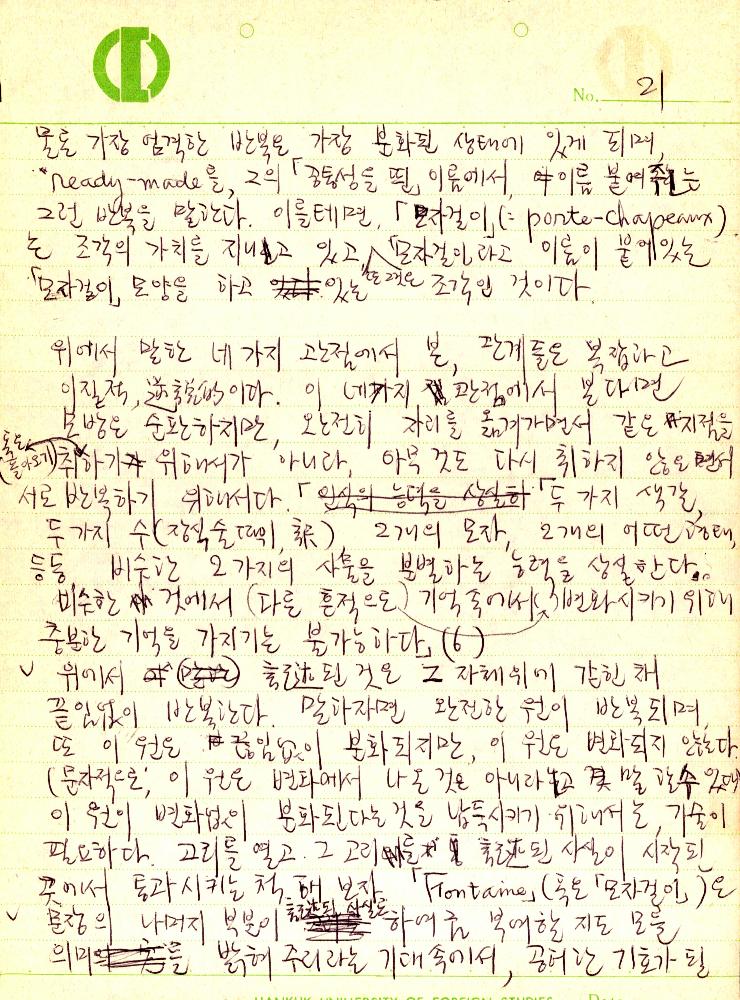 No. 21
물론 가장 엄격한 반복은 가장 분화된 상태에 있게 되며,
"ready-made를, 그의 「공통성을 띤」 이름에서, 이름 붙여주는
그런 반복을 말한다. 이를테면, 「모자걸이」(= porte-chapeaux)
는 조각의 가치를 지니고 있고, 「모자걸이」라고 이름이 붙어있는
「모자걸이」 모양을 하고 있는 또 그것은 조각인 것이다.
위에서 말한 네 가지 관점에서 본, 관계들은 복잡하고
이질적, 逆說的이다. 이 네가지 관점에서 본다면
순환하지만, 완전히 자리를 옮겨가면서 같은 지점을
취하기 위해서가 아니라, 아무 것도 다시 취하지 않으면서
(혹은 돌아오기)
서로 반복하기 위해서다. 「인식의 능력을 상실하 「두 가지 색깔,
두 가지 수(장식술따위, 레이스) 2개의 모자, 2개의 어떤 형태,
등등 비슷한 2가지의 사물을 분별하는 능력을 상실한다..
비슷한 것에서 (다른 흔적으로) 기억속에서( )변화시키기 위해
충분한 기억을 가지기는 불가능하다」(6)
위에서 言述된 것은 그 자체위에 갇힌 채
끝임없이 반복한다. 말하자면 완전한 원이 반복되며,
또 이 원은 끝임없이 분화되지만, 이 원은 변화되지 않는다.
(문자적으로, 이 원은 변화에서 나온 것은 아니라고 말할수 있다)
이 원이 변화없이 분화된다는것을 납득시키기 위해서는, 기술이
필요하다. 고리를 열고 그 고리를 言述된 사실이 시작된
곳에서 통과시키는 척 해 보자. 「Fontaine」(혹은 「모자걸이」)은
문장의 나머지 부분이 言述된 사실로 하여금 부여할 지도 모를
의미를 밝혀 주리라는 기대속에서, 공허한 기호가 될
HANKUK UNIVERSITY OF FOREIGN STUDIES